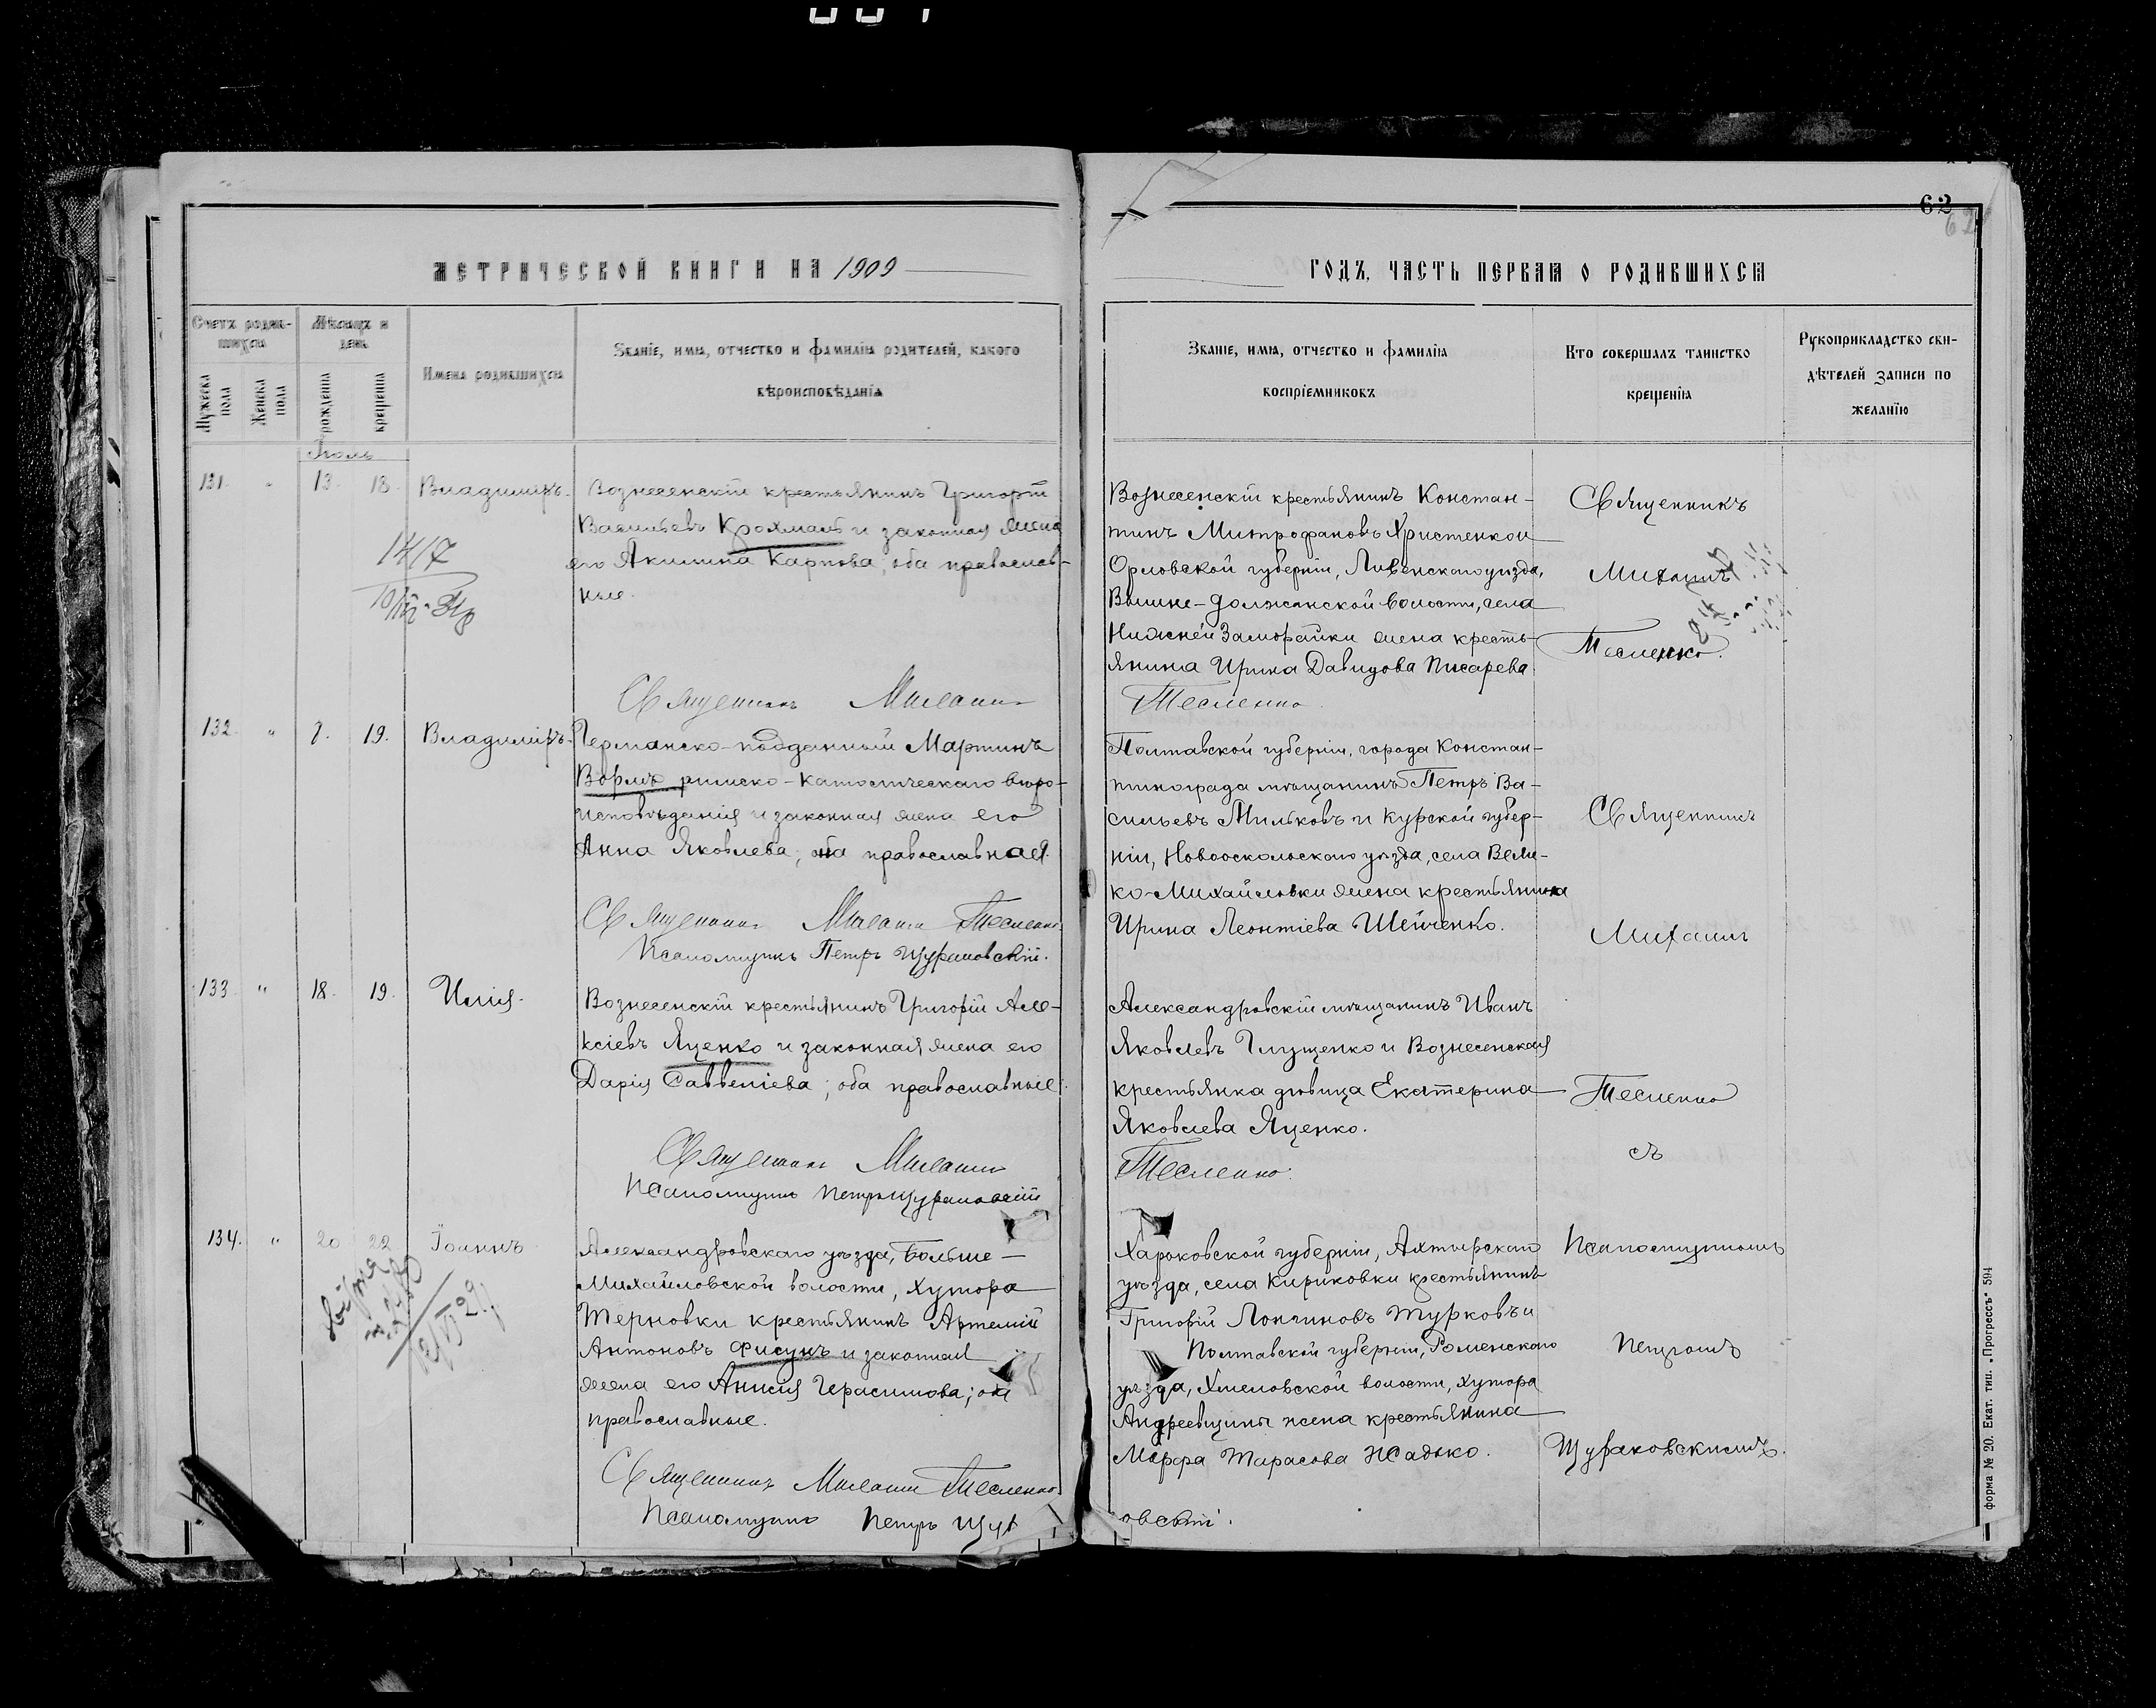 62
МЕТРИЧЕСКОЙ КНИГИ НА 1909
ГОДЪ, ЧАСТЬ ПЕРВАЯ О РОДИВШИХСЯ
Счетъ родив-
шихся
Мѣсяцъ и
день
Мужеска
пола
Женска
пола
рожденія
крещенія
Имена родившихся
Званіе, имя, отчество и фамилія родителей, какого
вѣроисповѣданія
Званіе, имя, отчество и фамилія
воспріемниковъ
Кто совершалъ таинство
крещенія
Рукоприкладство сви-
дѣтелей записи по
желанію
Іюль
131. " 13. 18. Владиміръ.
Вознесенскій крестьянинъ Григорій
Васильевъ Крохмаль и законная жена
его Акилина Карпова; оба православ-
ные.
Священникъ Михаилъ
Тесленко
Вознесенскій крестьянинъ Констан-
тинъ Митрофановъ Христенко и
Орловской губерніи, Ливенскаго уѣзда,
Вышне-Должанской волости, села
Нижней Заморайки жена кресть-
янина Ирина Давидова Писарева.
Священникъ
Михаилъ
Тесленко.
132. " 7. 19. Владиміръ.
Германско-подданный Мартинъ
Вормъ римско-католическаго вѣро-
исповѣданія и законная жена его
Анна Яковлева, она православная.
Священникъ Михаилъ Тесленко.
Псаломщикъ Петръ Щураковскій.
Полтавской губерніи, города Констан-
тинограда мѣщанинъ Петръ Ва-
сильевъ Мильковъ и Курской губер-
ніи, Новооскольскаго уѣзда, села Вели-
ко-Михайловки жена крестьянина
Ирина Леонтіева Шейченко.
Священникъ
Михаилъ
133. " 18. 19. Илія.
Вознесенскій крестьянинъ Григорій Але-
ксіевъ Яценко и законная жена его
Дарія Савеліева; оба православные.
Священникъ Михаилъ
Тесленко.
Псаломщикъ Петръ Щураковскій
Александровскій мѣщанинъ Иванъ
Яковлевъ Глущенко и Вознесенская
крестьянка дѣвица Екатерина
Яковлева Яценко.
Тесленко
съ
134. " 20 22 Іоаннъ
Александровскаго уѣзда, Больше-
Михайловской волости, хутора
Терновки крестьянинъ Артемій
Антоновъ Фисунъ и законная
жена его Анисія Герасимова; оба
православные.
Священникъ Михаилъ Тесленко.
Псаломщикъ Петръ Щур
овскій.
Харьковской губерніи, Ахтырскаго
уѣзда, села Кириковки крестьянинъ
Григорій Лонгиновъ Турковъ и
Полтавской губерніи, Роменскаго
уѣзда, Хмеловской волости, хутора
Андреевщины жена крестьянина
Марфа Тарасова Жадько.
Псаломщикомъ
Петромъ
Щураковскимъ.
форма № 20. Екат. тип. „Прогрессъ" 594